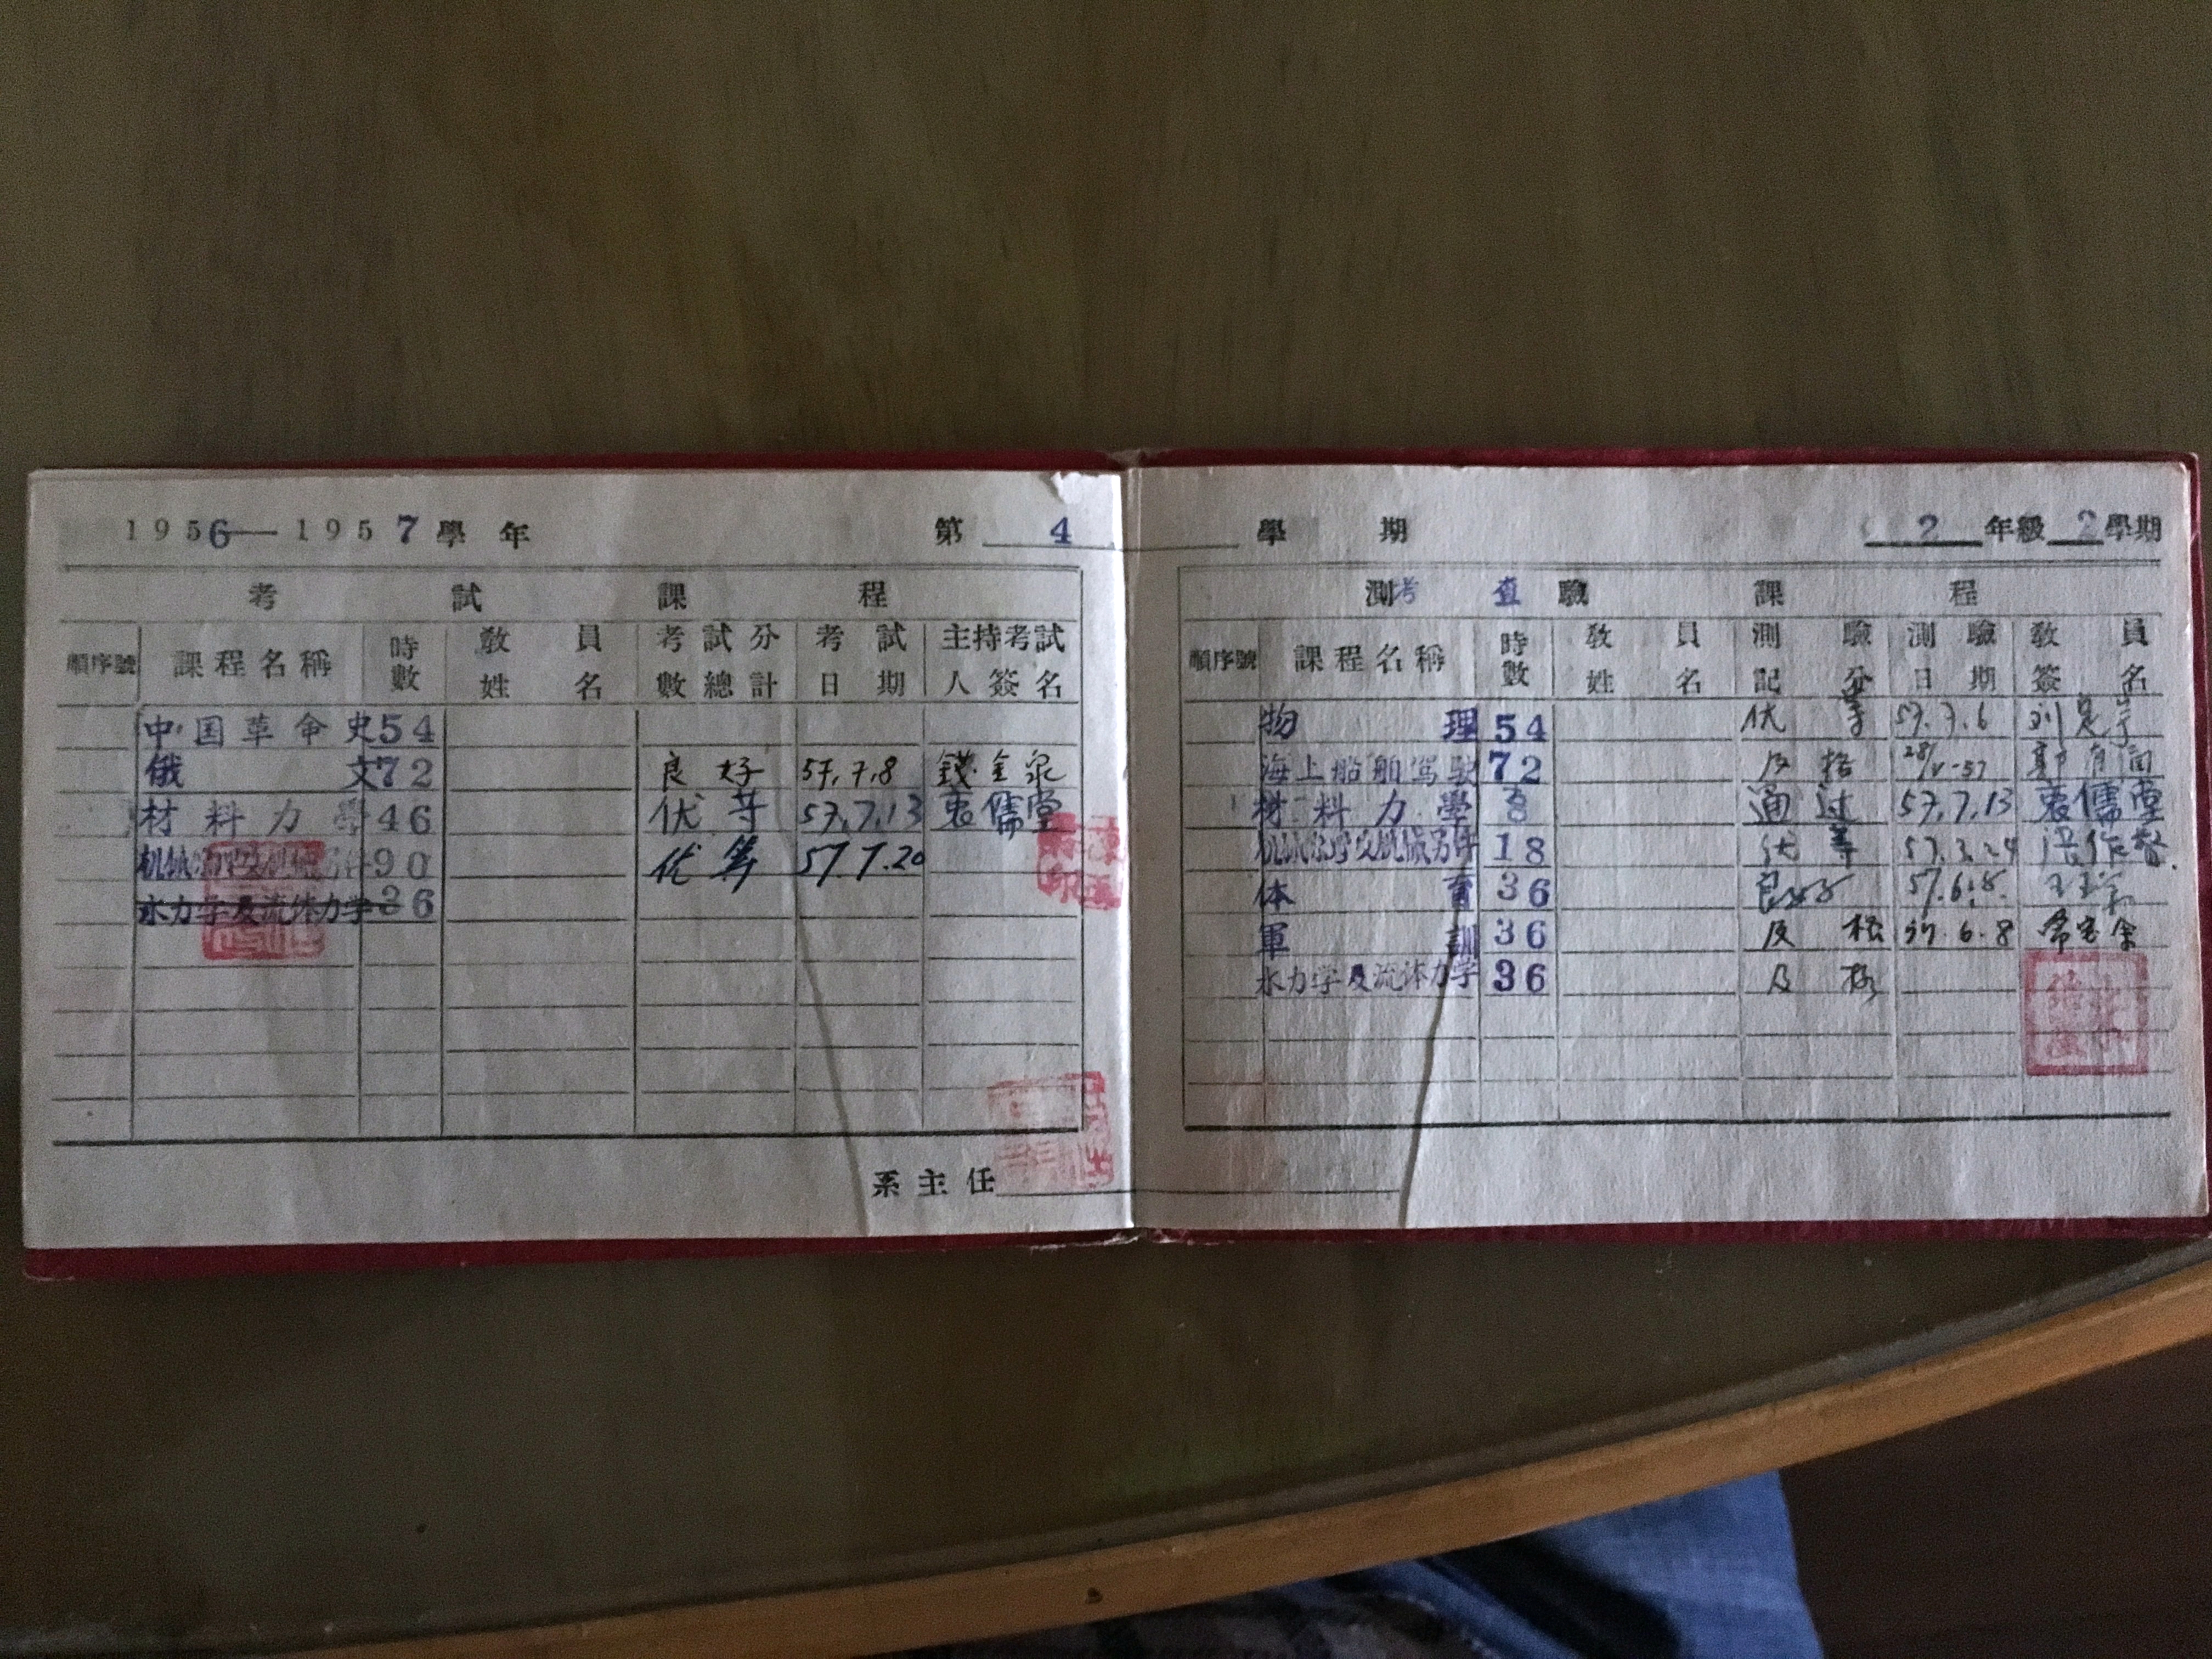 1956—1957學年 第 4 學期 2年級2學期
考試課程
順序號 課程名稱 時數 教員姓名 考試分數總計 考試日期 主持考試人簽名
中国革命史 54
俄文 72 良好 57.7.8 錢金泉
材料力學 46 优等 57.7.13 袁儒堂
90 优等 57.7.20
水力学及流体力学 36
系主任
測考查驗課程
順序號 課程名稱 時數 教員姓名 測驗記分 測驗日期 教員簽名
物理 54 优等 57.7.6
海上船舶驾驶 72 及格
材料力學 8 通过 57.7.13 袁儒堂
18 优等 57.3.24
体育 36 良好 57.6.8.
軍訓 36 及格 57.6.8
水力学及流体力学 36 及格